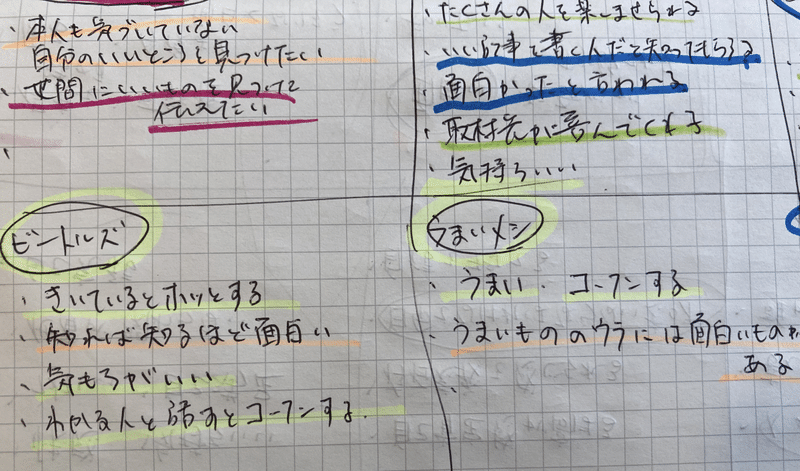 本人も気づいていない
自分のいいところを見つけたい
世間にいいものを見つけて
伝えたい
たくさんの人を楽しませられる
いい記事を書く人だと知ってもらえる
面白かったと言われる
取材先が喜んでくれる
気持ちいい
ビートルズ
・きいているとホッとする
・知れば知るほど面白い
・気もちがいい
・わかる人と話すとコーフンする
うまいメシ
・うまい. コーフンする
・うまいもののウラには面白いものが
ある